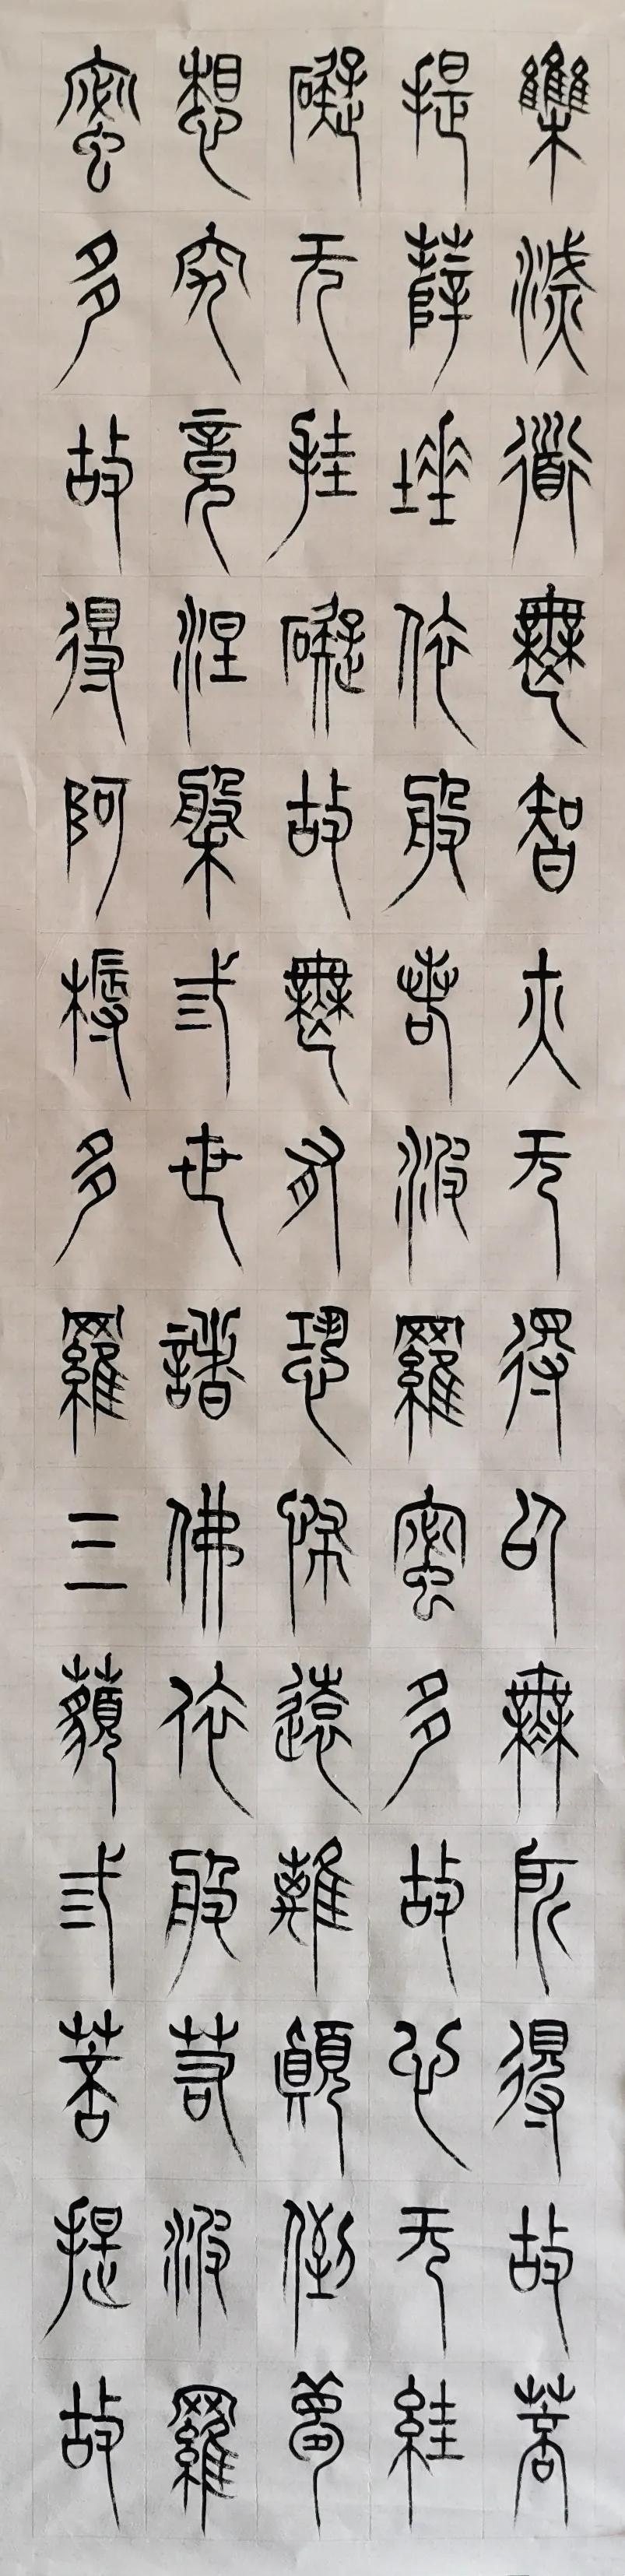 集滅道無智亦无得以無所得故菩
提薩埵依般若波羅蜜多故心无絓
礙无挂礙故無有恐怖遠離顛倒夢
想究竟涅槃弎世諸佛依般若波羅
蜜多故得阿槈多羅三藐弎菩提故